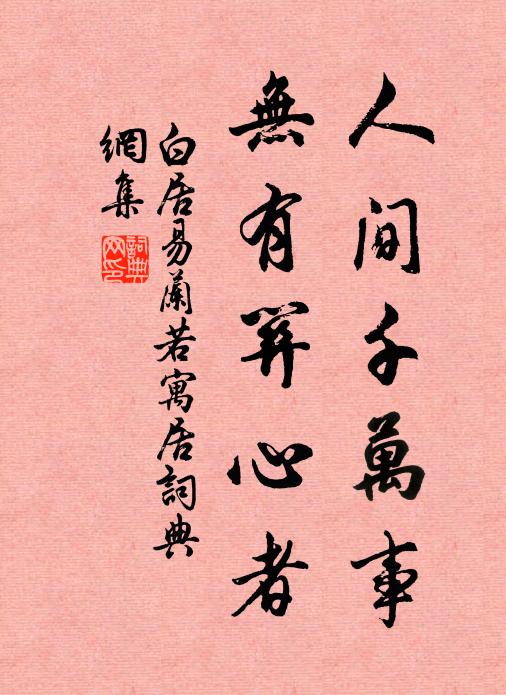 人間千萬事
無有關心者
白居易蘭若寓居詞典
網集
詞典
网印